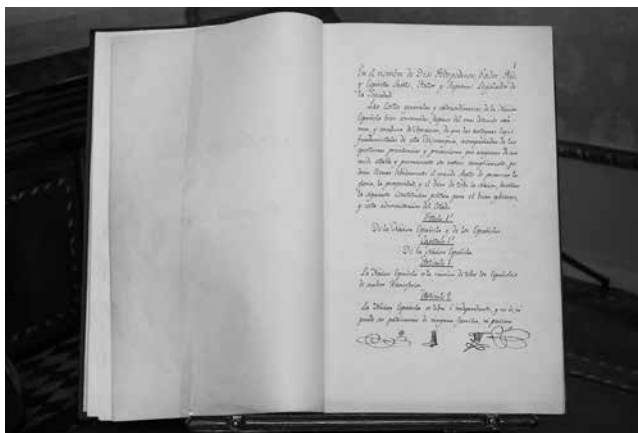 1
En el nombre de Dios Todopoderoso, Padre, Hijo,
y Espiritu Santo, Autor y Supremo Legislador de
la Sociedad.
Las Cortes generales y extraordinarias de la Nacion
Española bien convencidas, despues del mas detenido exâ-
men, y madura deliberacion, de que las antiguas leyes
fundamentales de esta Monarquia, acompañadas de las
oportunas providencias y precauciones que aseguren de un
modo estable y permanente su entero cumplimiento, po-
dran llenar debidamente el grande objeto de promover la
gloria, la prosperidad, y el bien de toda la Nacion, decretan
la siguiente Constitucion politica para el buen gobierno,
y recta administracion del Estado.
Titulo 1º
De la Nacion Española y de los Españoles.
Capitulo 1º
De la Nacion Española.
Articulo 1.
La Nacion Española es la reunion de todos los Españoles
de ambos Hemisferios.
Articulo 2.
La Nacion Española es libre é independiente, y no es, ni
puede ser patrimonio de ninguna familia, ni persona.